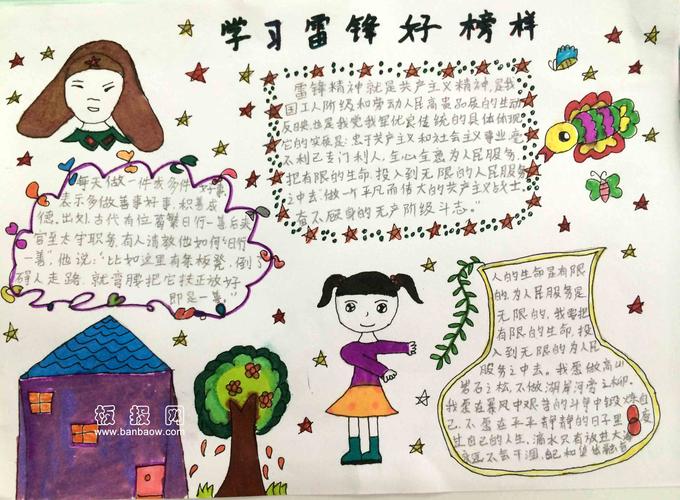 学习雷锋好榜样
雷锋精神就是共产主义精神,是我
国工人阶级和劳动人民高贵品质的生动
反映,也是我党我军优良传统的具体体现
它的实质是:忠于共产主义和社会主义事业,毫
不利己专门利人,全心全意为人民服务,
把有限的生命,投入到无限的人民服务
之中去,做一个平凡而伟大的共产主义战士,
奋不顾身的无产阶级斗志。”
每天做一件或多件好事
表示多做善事好事,积善成
德。出处:古代有位葛繁日行一善后来
官至太守职务,有人请教他如何“日行
一善”,他说:“比如这里有条板凳,倒了
碍人走路,就弯腰把它扶正放好
即是一善。”
人的生命是有限
的,为人民服务是
无限的,我要把
有限的生命,投
入到无限的为人民
服务之中去。我愿做高山
岩石之松,不做湖岸河旁之柳。
我愿在暴风中艰苦的斗争中锻炼自
己,不愿在平平静静的日子里度
过自己的人生,滴水只有放进大海
永远不会干涸,
板报网
www.banbaow.com